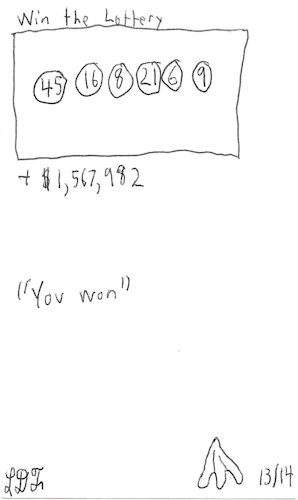 Win the Lottery
45 16 8 21 6 9
+ $1,567,982
("You won")
LDF 13/14